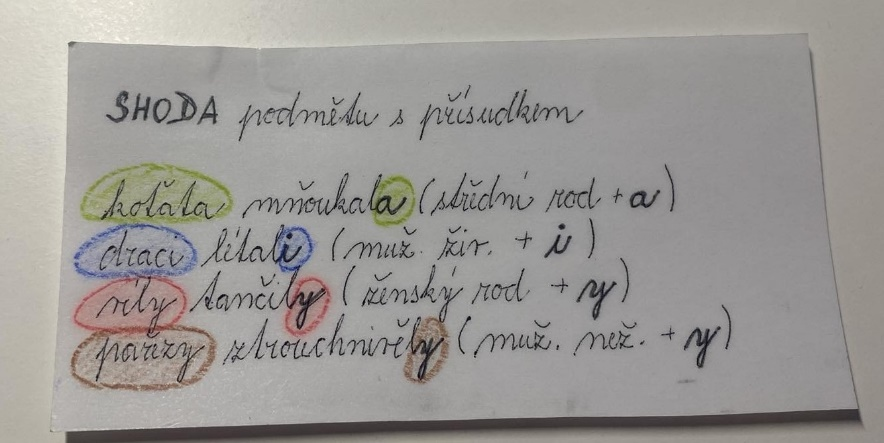 SHODA podmětu s přísudkem
koťata mňoukala (střední rod + a)
draci létali (muž. živ. + i)
víly tančily (ženský rod + y)
pařezy ztrouchnivěly (muž. než. + y)